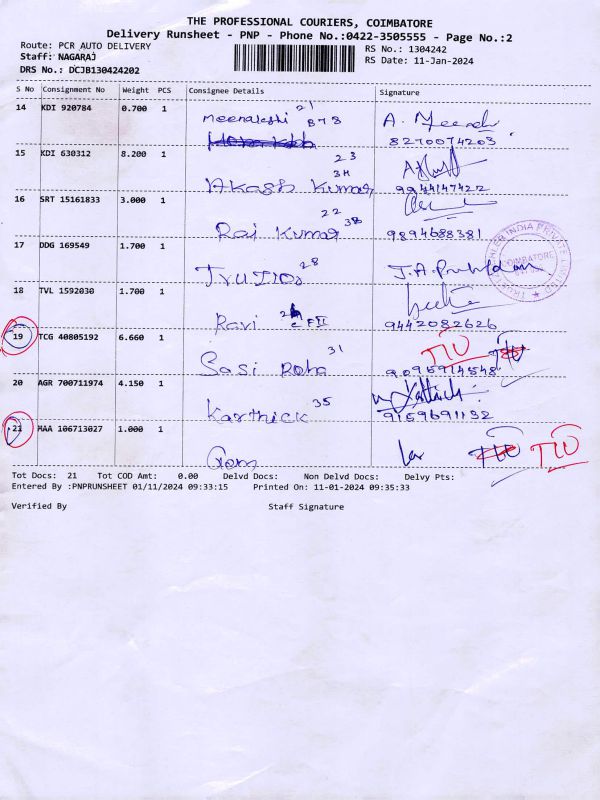 THE PROFESSIONAL COURIERS, COIMBATORE
Delivery Runsheet - PNP - Phone No.:0422-3505555 - Page No.:2
Route: PCR AUTO DELIVERY
RS No.: 1304242
Staff: NAGARAJ
RS Date: 11-Jan-2024
DRS No.: DCJB130424202
S No Consignment No Weight PCS Consignee Details Signature
14 KDI 920784 0.700 1 Meenakshi 21 878 A. Meena
8270074203
15 KDI 630312 8.200 1 23
3H
Akash Kumar 9944147422
16 SRT 15161833 3.000 1 22
3B
Raj Kumar 9894688381
17 DDG 169549 1.700 1 28
18 TVL 1592030 1.700 1
Ravi 9442082626
19 TCG 40805192 6.660 1 31
Sasi 9095914548
20 AGR 700711974 4.150 1 35
Karthick 9159691132
21 MAA 106713027 1.000 1
Tot Docs: 21 Tot COD Amt: 0.00 Delvd Docs: Non Delvd Docs: Delvy Pts:
Entered By :PNPRUNSHEET 01/11/2024 09:33:15 Printed On: 11-01-2024 09:35:33
Verified By Staff Signature